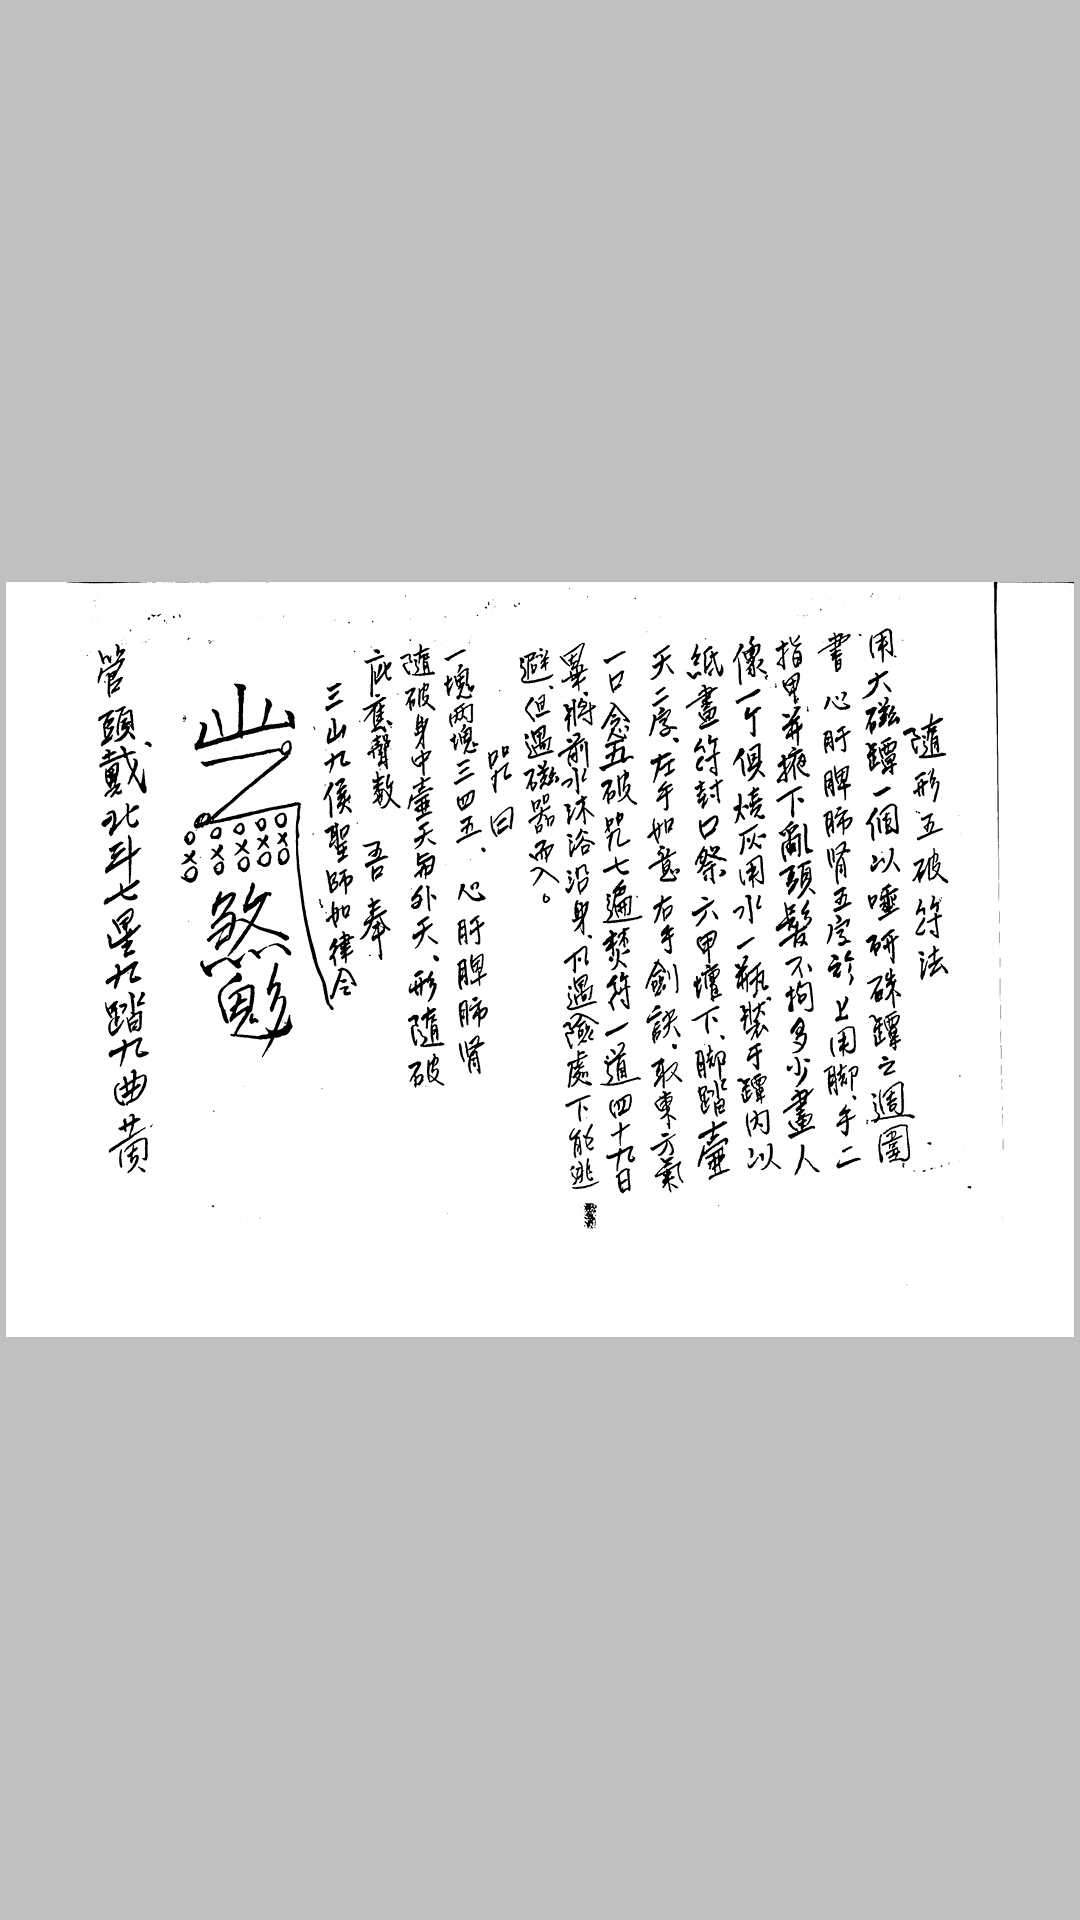 隨形五破符法
用大磁罈一個以唾研硃罈之週圍
書心肝脾肺肾五字於上用脚、手二
指甲并掖下亂頭髮不拘多少畫人
像一个俱燒灰用水一瓶裝于罈内以
紙畫符封口祭六甲壇下、脚踏壷
天二字、左手如意右手劍訣、取東方氣
一口念五破咒七遍焚符一道四十九日
畢、將前水沐浴沿身、凡遇險處下能逃
避、但遇磁器而入。
咒曰
一塊两塊三四五、心肝脾肺肾
隨破身中壷天与外天、形隨破
庇應聲敖 吾奉
三山九侯聖師如律令
煞
管頭戴北斗七星九踏九曲黄